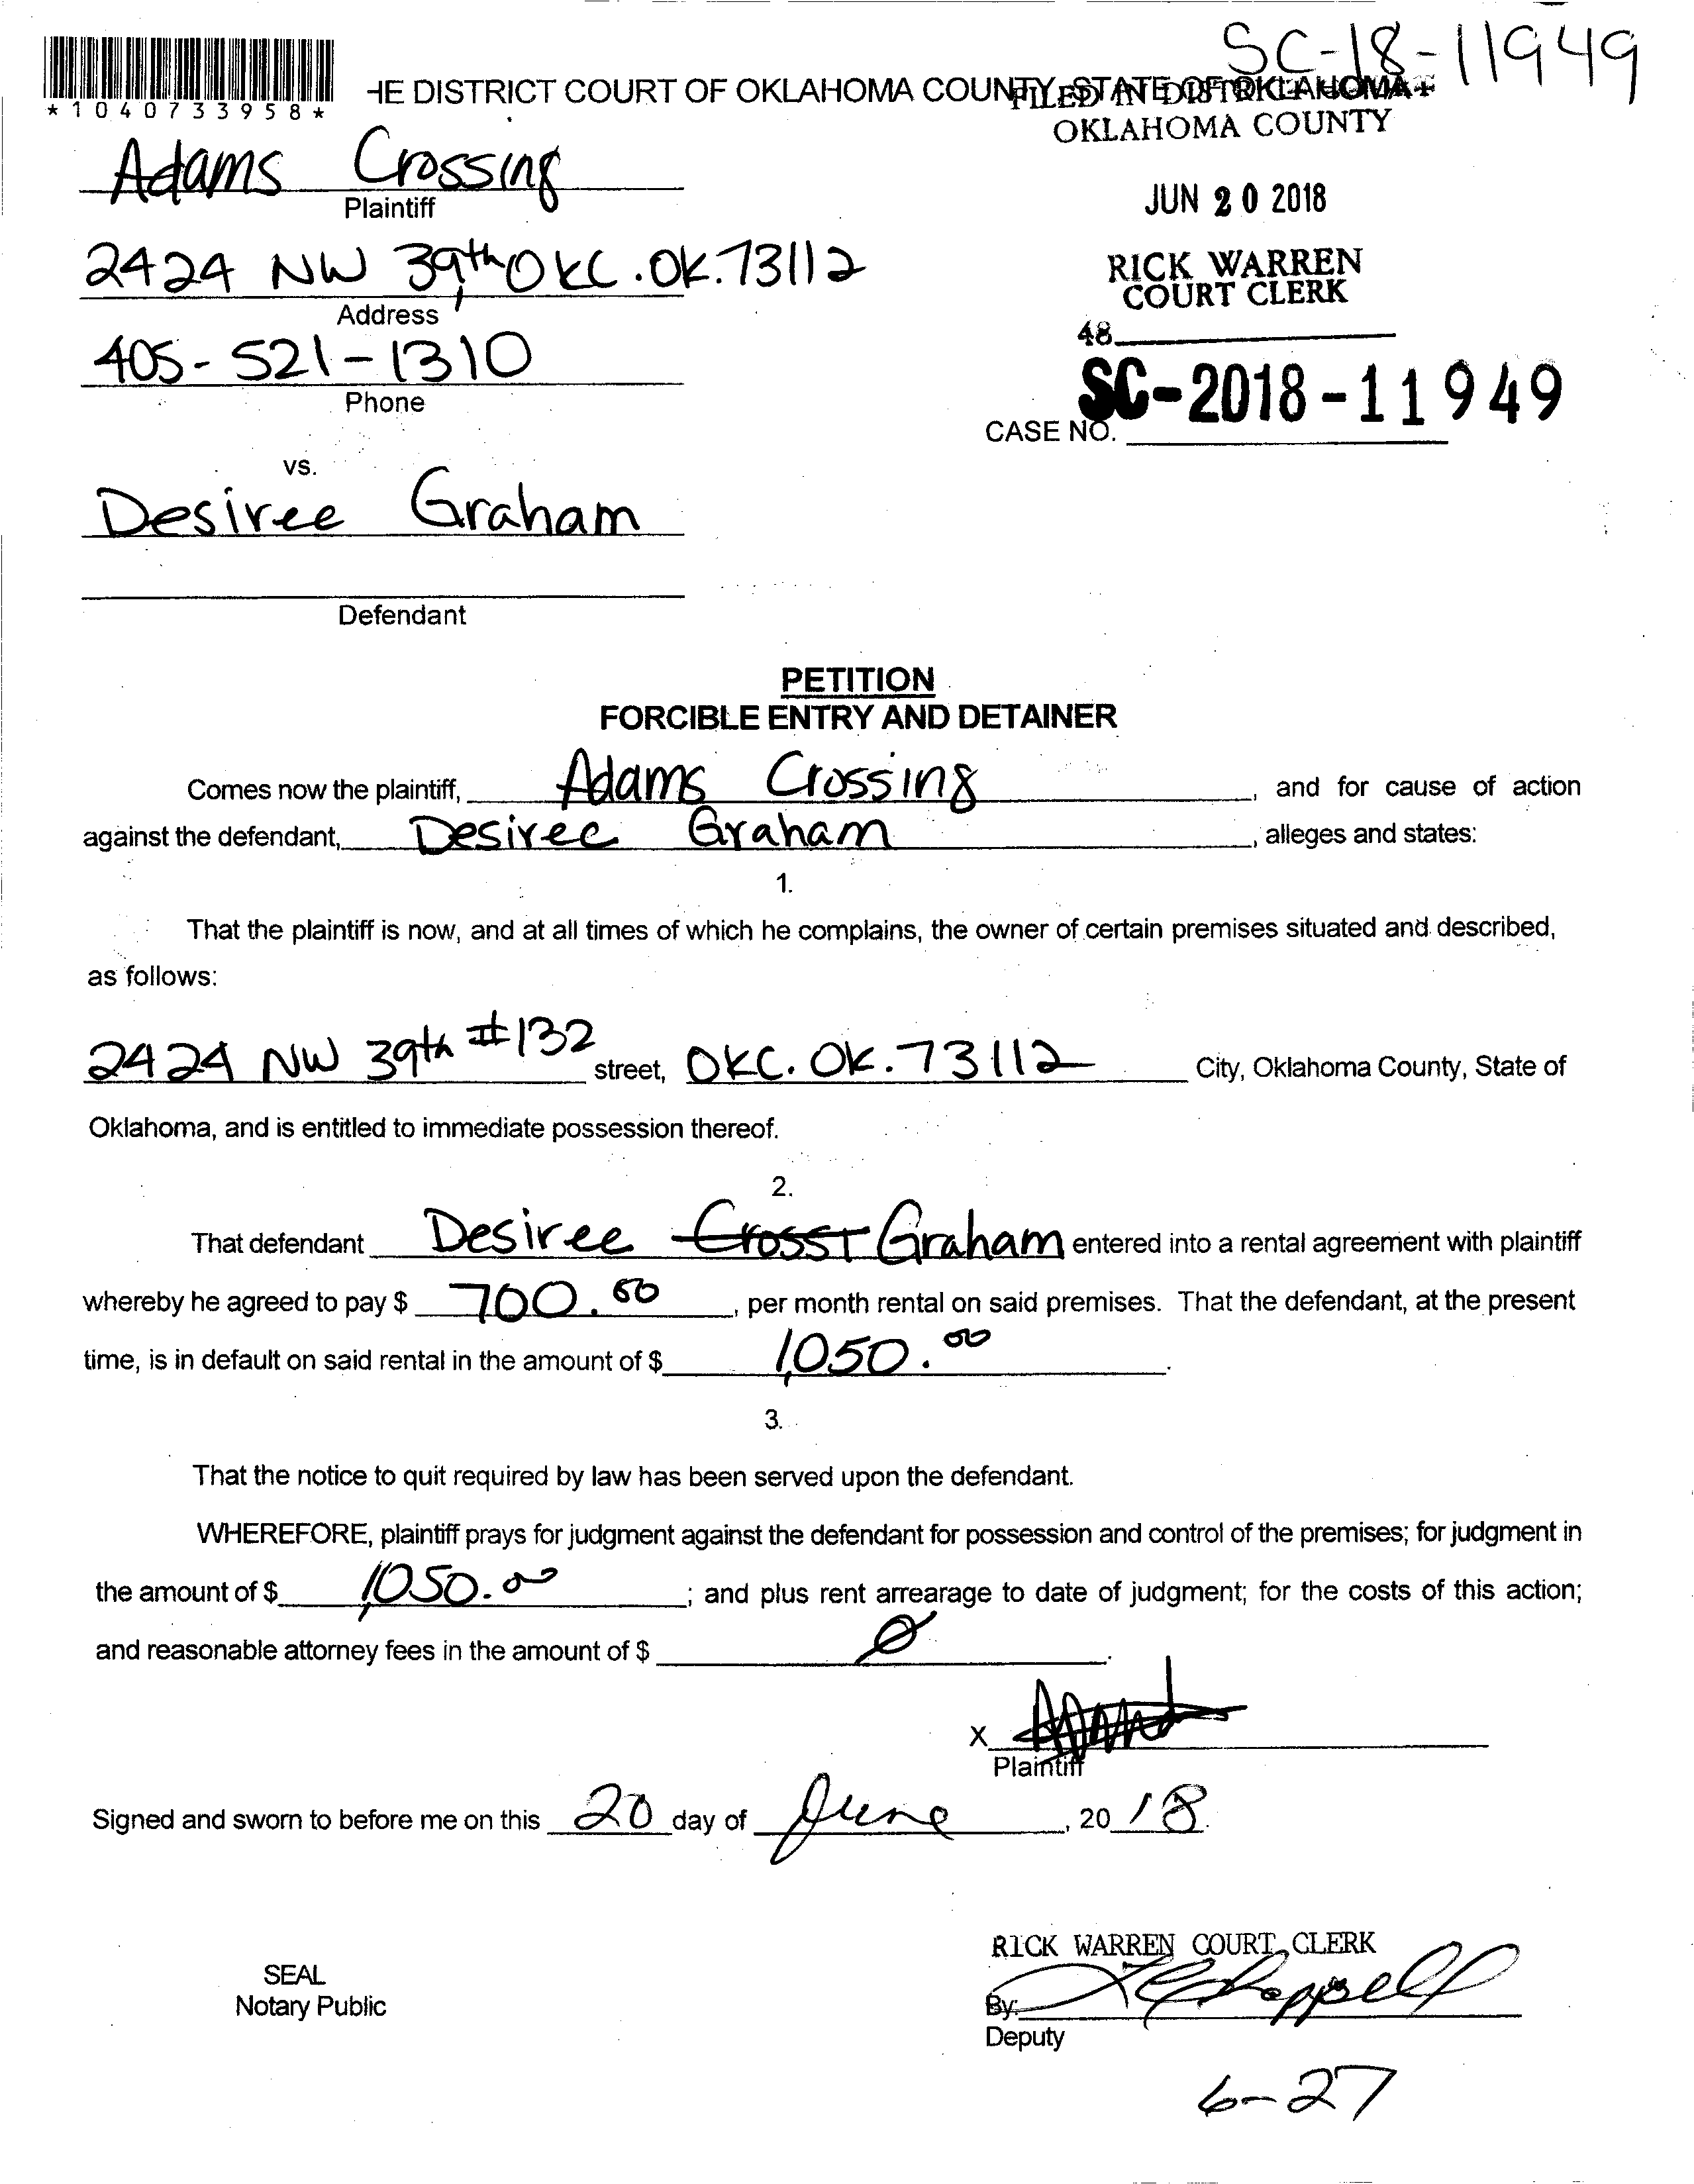 SC-18-11949
*1040733958*
HE DISTRICT COURT OF OKLAHOMA COUNTY, STATE OF OKLAHOMA
FILED IN DISTRICT
OKLAHOMA COUNTY
Adams Crossing
Plaintiff
JUN 20 2018
2424 NW 39th OKC.OK.73112
Address
RICK WARREN
COURT CLERK
405-521-1310
Phone
48
SC-2018-11949
CASE NO.
vs.
Desiree Graham
Defendant
PETITION
FORCIBLE ENTRY AND DETAINER
Comes now the plaintiff, Adams Crossing, and for cause of action
against the defendant, Desiree Graham, alleges and states:
1.
That the plaintiff is now, and at all times of which he complains, the owner of certain premises situated and described,
as follows:
2424 NW 39th #132 street, OKC. OK. 73112 City, Oklahoma County, State of
Oklahoma, and is entitled to immediate possession thereof.
2.
That defendant Desiree Graham entered into a rental agreement with plaintiff
whereby he agreed to pay $ 700.00, per month rental on said premises. That the defendant, at the present
time, is in default on said rental in the amount of $ 1,050.00.
3.
That the notice to quit required by law has been served upon the defendant.
WHEREFORE, plaintiff prays for judgment against the defendant for possession and control of the premises; for judgment in
the amount of $ 1,050.00; and plus rent arrearage to date of judgment; for the costs of this action;
and reasonable attorney fees in the amount of $ Ø.
X
Plaintiff
Signed and sworn to before me on this 20 day of June, 20 18.
RICK WARREN COURT CLERK
SEAL
Notary Public
By:
Deputy
6-27